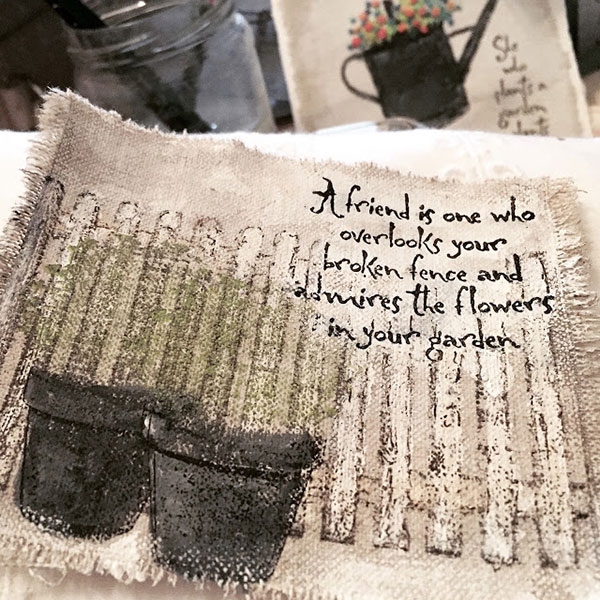 A friend is one who
overlooks your
broken fence and
admires the flowers
in your garden
She
who
plants a
garden
plants